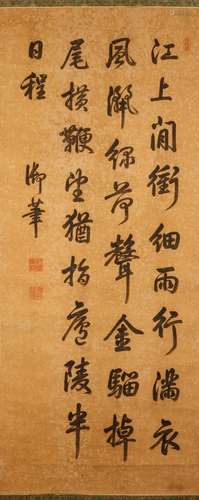 江上閒衝細雨行滿衣
風灑綠荷聲金騮掉
尾横鞭望猶指廬陵半
日程
御筆